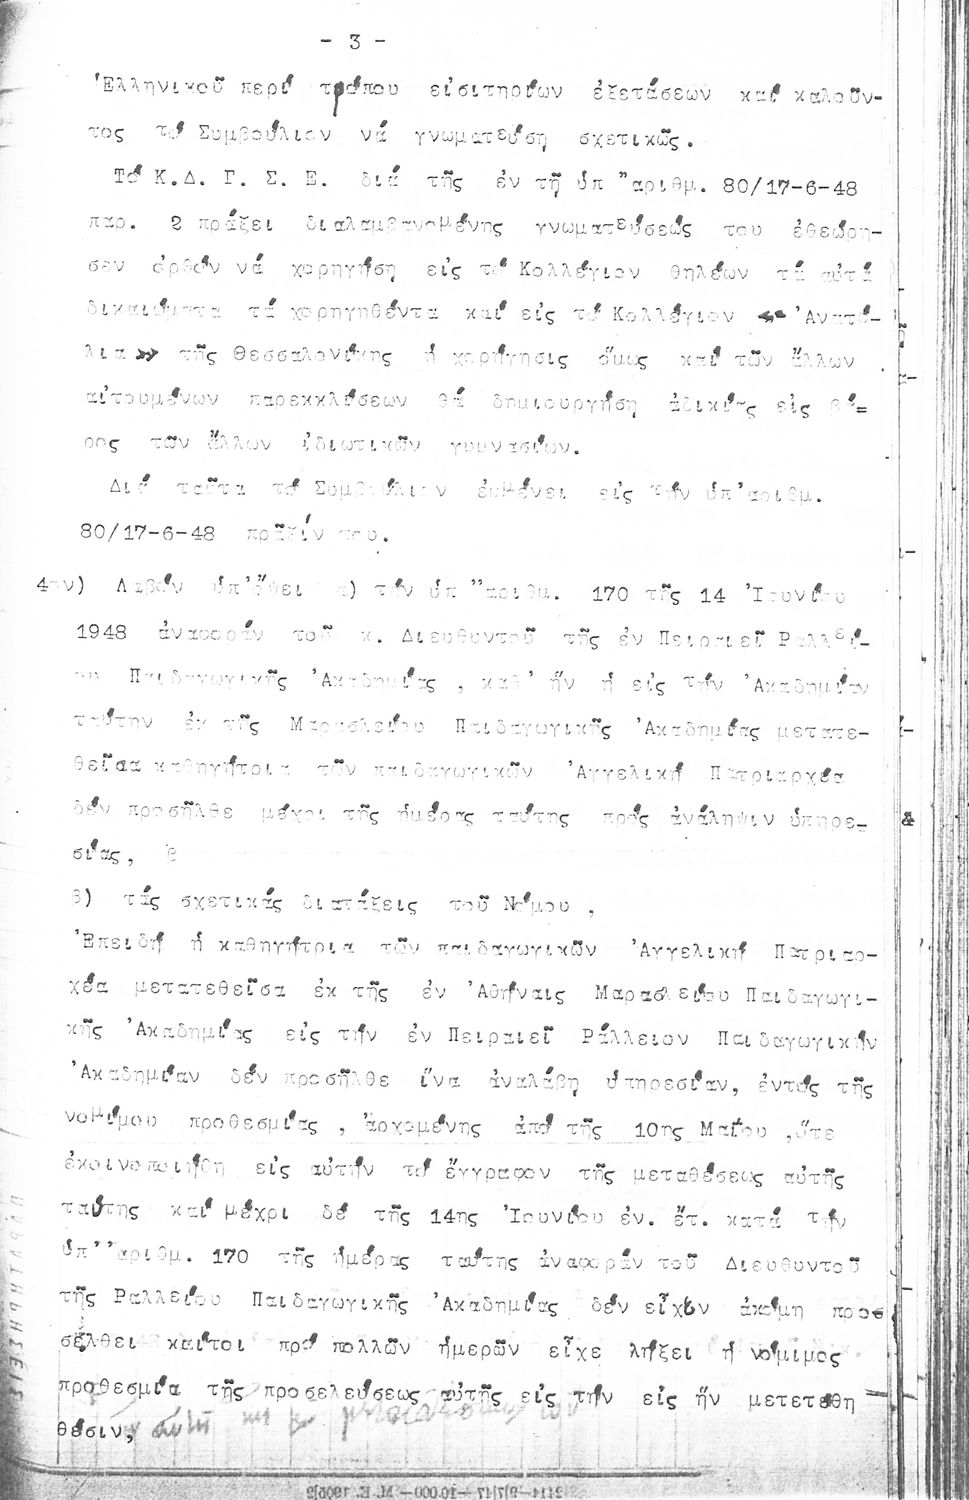 - 3 -
Ἑλληνικοῦ περί τρόπου εἰσιτηρίων ἐξετάσεων καί καλοῦν-
τος τό Συμβούλιον νά γνωματεύση σχετικῶς.
Τό Κ.Δ. Γ. Σ. Ε. διά τῆς ἐν τῇ ὑπ "αριθμ. 80/17-6-48
παρ. 2 πράξει διαλαμβανομένης γνωματεύσεώς του ἐθεώρη-
σεν ὀρθόν νά χορηγήση εἰς τό Κολλέγιον θηλέων τά αὐτά
δικαιώματα τά χορηγηθέντα καί εἰς τό Κολλέγιον « Ἀνατό-
λια » τῆς Θεσσαλονίκης ἡ χορήγησις ὅμως καί τῶν ἄλλων
αἰτουμένων παρεκκλίσεων θά δημιουργήση ἀδικίας εἰς βά=
ρος τῶν ἄλλων ἰδιωτικῶν γυμνασίων.
Διά ταῦτα τό Συμβούλιον ἐμμένει εἰς τήν ὑπ'αριθμ.
80/17-6-48 πρᾶξίν του.
4ον) Λαβόν ὑπ'ὄψει α) τήν ὑπ "αριθμ. 170 τῆς 14 Ἰουνίου
1948 ἀναφοράν τοῦ κ. Διευθυντοῦ τῆς ἐν Πειραιεῖ Ραλλεί-
ου Παιδαγωγικῆς Ἀκαδημίας , καθ' ἥν ἡ εἰς τήν Ἀκαδημίαν
ταύτην ἐκ τῆς Μαρασλείου Παιδαγωγικῆς Ἀκαδημίας μετατε-
θεῖσα καθηγήτρια τῶν παιδαγωγικῶν Ἀγγελική Πατριαρχέα
δέν προσῆλθε μέχρι τῆς ἡμέρας ταύτης πρός ἀνάληψιν ὑπηρε-
σίας,
β) τάς σχετικάς διατάξεις τοῦ Νόμου ,
Ἐπειδή ἡ καθηγήτρια τῶν παιδαγωγικῶν Ἀγγελική Πατριαρ-
χέα μετατεθεῖσα ἐκ τῆς ἐν Ἀθήναις Μαρασλείου Παιδαγωγι-
κῆς Ἀκαδημίας εἰς τήν ἐν Πειραιεῖ Ράλλειον Παιδαγωγικήν
Ἀκαδημίαν δέν προσῆλθε ἵνα ἀναλάβη ὑπηρεσίαν, ἐντός τῆς
νομίμου προθεσμίας , ἀρχομένης ἀπό τῆς 10ης Μαΐου ,ὅτε
ἐκοινοποιήθη εἰς αὐτήν τό ἔγγραφον τῆς μεταθέσεως αὐτῆς
ταύτης καί μέχρι δέ τῆς 14ης Ἰουνίου ἐν. ἔτ. κατά τήν
ὑπ''αριθμ. 170 τῆς ἡμέρας ταύτης ἀναφοράν τοῦ Διευθυντοῦ
τῆς Ραλλείου Παιδαγωγικῆς Ἀκαδημίας δέν εἶχεν ἀκόμη προσ
σέλθει καίτοι πρό πολλῶν ἡμερῶν εἶχε λήξει ἡ νόμιμος
προθεσμία τῆς προσελεύσεως αὐτῆς εἰς τήν εἰς ἥν μετετέθη
θέσιν,